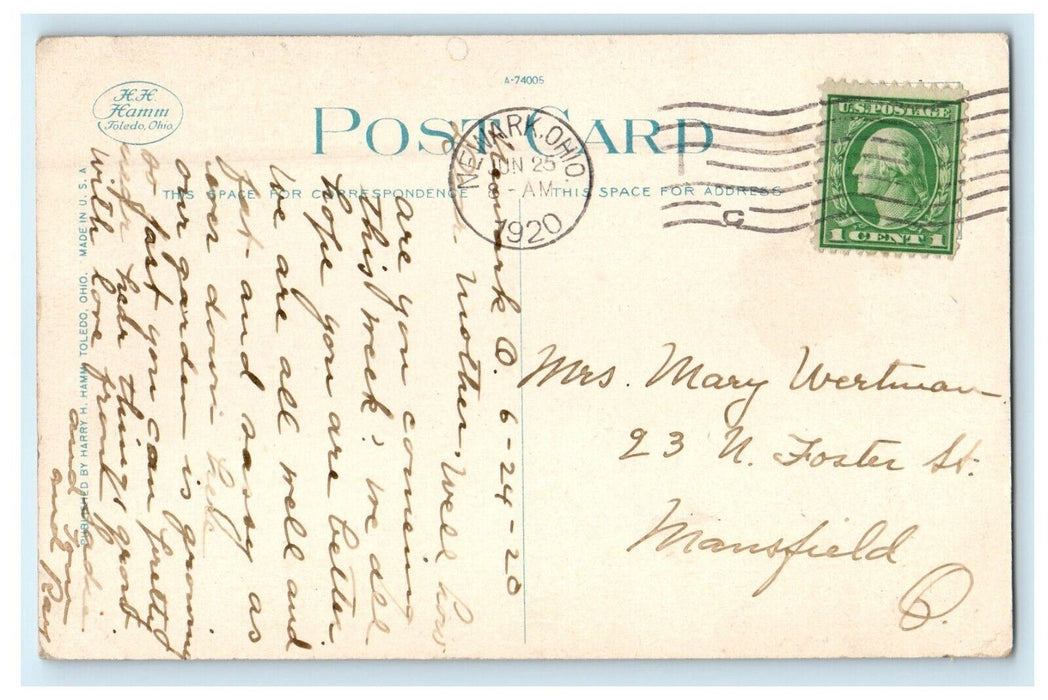 A-74005
H.H.
Hamm
Toledo, Ohio.
POST CARD
THIS SPACE FOR CORRESPONDENCE
THIS SPACE FOR ADDRESS
NEWARK, OHIO
JUN 25
8 - AM
1920
U.S. POSTAGE
1 CENT 1
Newark O. 6-24-20
Mother, Well how
are you coming
this week? we all
hope you are better
we are all well and
fat and sassy as
ever down here
our garden is growing
so fast you can
hear things grow
with love from
and
and Ray
Mrs. Mary Wertman
23 N. Foster St.
Mansfield
O.
PUBLISHED BY HARRY H. HAMM, TOLEDO, OHIO. MADE IN U.S.A